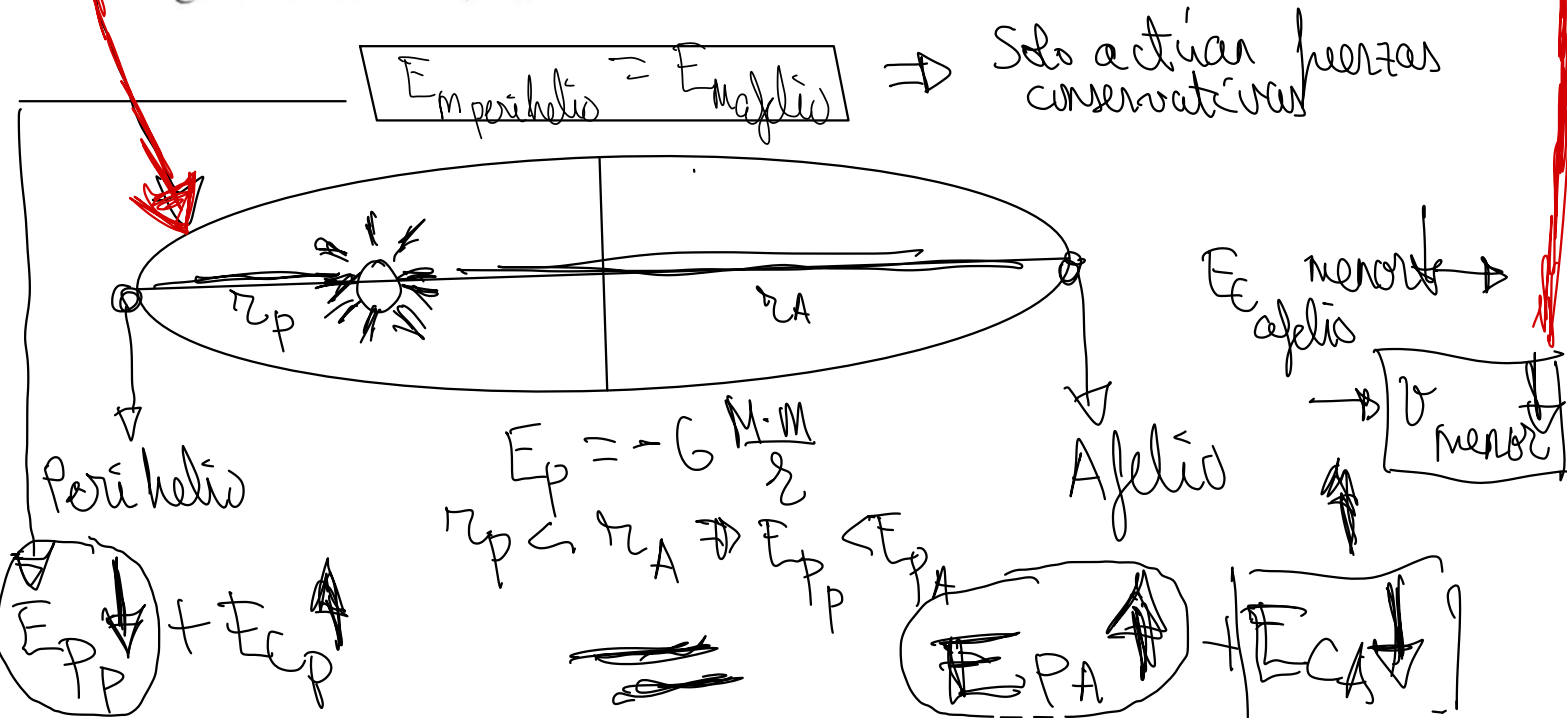 E_m perihelio = E_m afelio ⇒ Solo actúan fuerzas
conservativas
r_p
r_A
E_c afelio menor ↓ →
→ v menor ↓
Perihelio
Afelio
E_p = - G M·m / r
r_p < r_A ⇒ E_p_p < E_p_A
E_p_p ↓ + E_c_p ↑ = E_p_A ↑ + E_c_A ↓